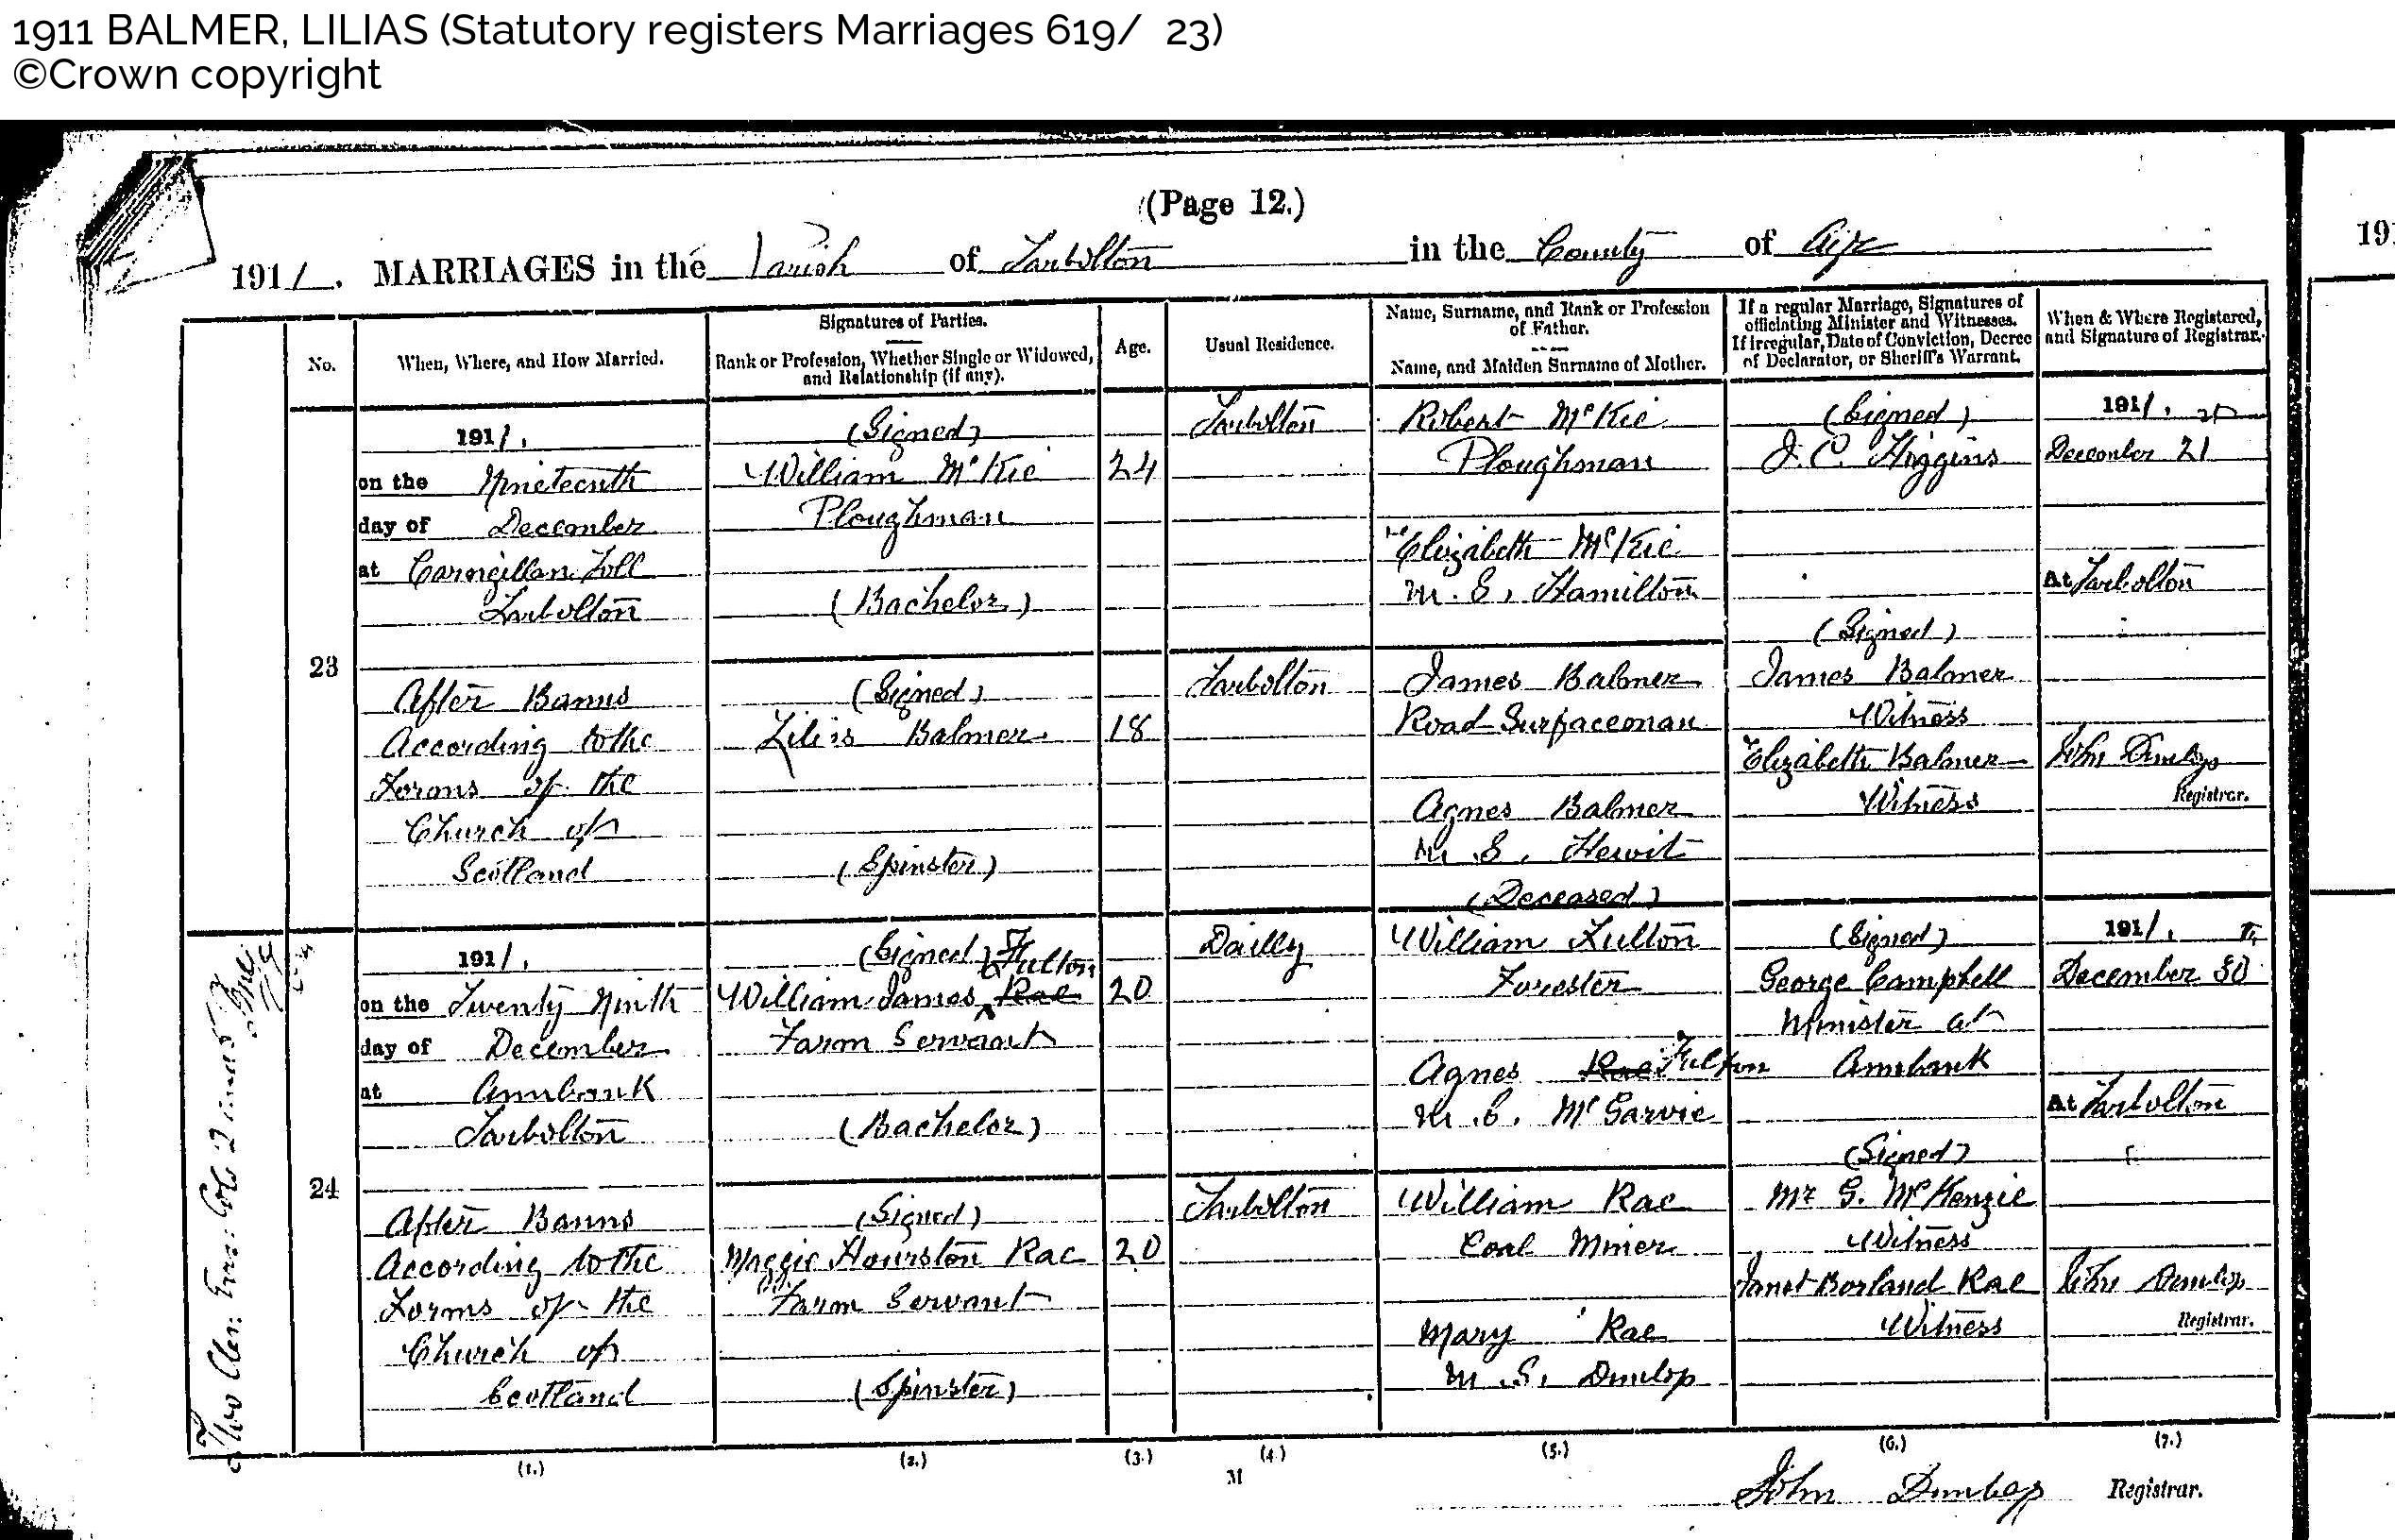 1911 BALMER, LILIAS (Statutory registers Marriages 619/ 23)
©Crown copyright
(Page 12.)
1911. MARRIAGES in the Parish of Tarbolton in the County of Ayr
191
No.
When, Where, and How Married.
Signatures of Parties.
Rank or Profession, Whether Single or Widowed,
and Relationship (if any).
Age.
Usual Residence.
Name, Surname, and Rank or Profession
of Father.
Name, and Maiden Surname of Mother.
If a regular Marriage, Signatures of
officiating Minister and Witnesses.
If irregular, Date of Conviction, Decree
of Declarator, or Sheriff's Warrant.
When & Where Registered,
and Signature of Registrar.
23
1911.
on the Nineteenth
day of December
at Carngillan Toll
Tarbolton
After Banns
According to the
Forms of the
Church of
Scotland
(Signed)
William McKie
Ploughman
(Bachelor)
(Signed)
Lilias Balmer
(Spinster)
24
18
Tarbolton
Tarbolton
Robert McKie
Ploughman
Elizabeth McKie
M.S. Hamilton
James Balmer
Road Surfaceman
Agnes Balmer
M.S. Hewit
(Deceased)
(Signed)
J. C. Higgins
(Signed)
James Balmer
Witness
Elizabeth Balmer
Witness
1911.
December 21
At Tarbolton
John Dunlop
Registrar.
24
1911.
on the Twenty Ninth
day of December
at Annbank
Tarbolton
After Banns
According to the
Forms of the
Church of
Scotland
(Signed)
Fulton
William James Rae
Farm Servant
(Bachelor)
(Signed)
Maggie Hourston Rae
Farm Servant
(Spinster)
20
20
Dailly
Tarbolton
William Fulton
Forester
Agnes Rae Fulton
M.S. McGarvie
William Rae
Coal Miner
Mary Rae
M.S. Dunlop
(Signed)
George Campbell
Minister at
Annbank
(Signed)
Mr G. McKenzie
Witness
Janet Borland Rae
Witness
1911.
December 30
At Tarbolton
John Dunlop
Registrar.
Two Cler: Err: Col: 2 and 5
(1.)
(2.)
(3.)
(4.)
(5.)
(6.)
(7.)
M
John Dunlop Registrar.